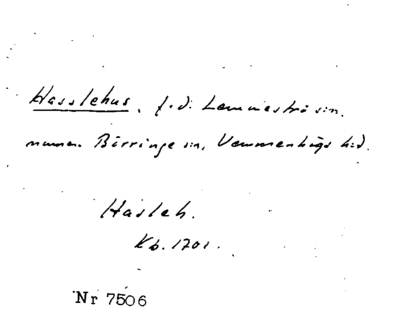 Hasslehus, f.d. Lemmeströ sn.
numera Börringe sn, Vemmenhögs hd.
Hasleh.
Kb. 1701.
Nr 7506